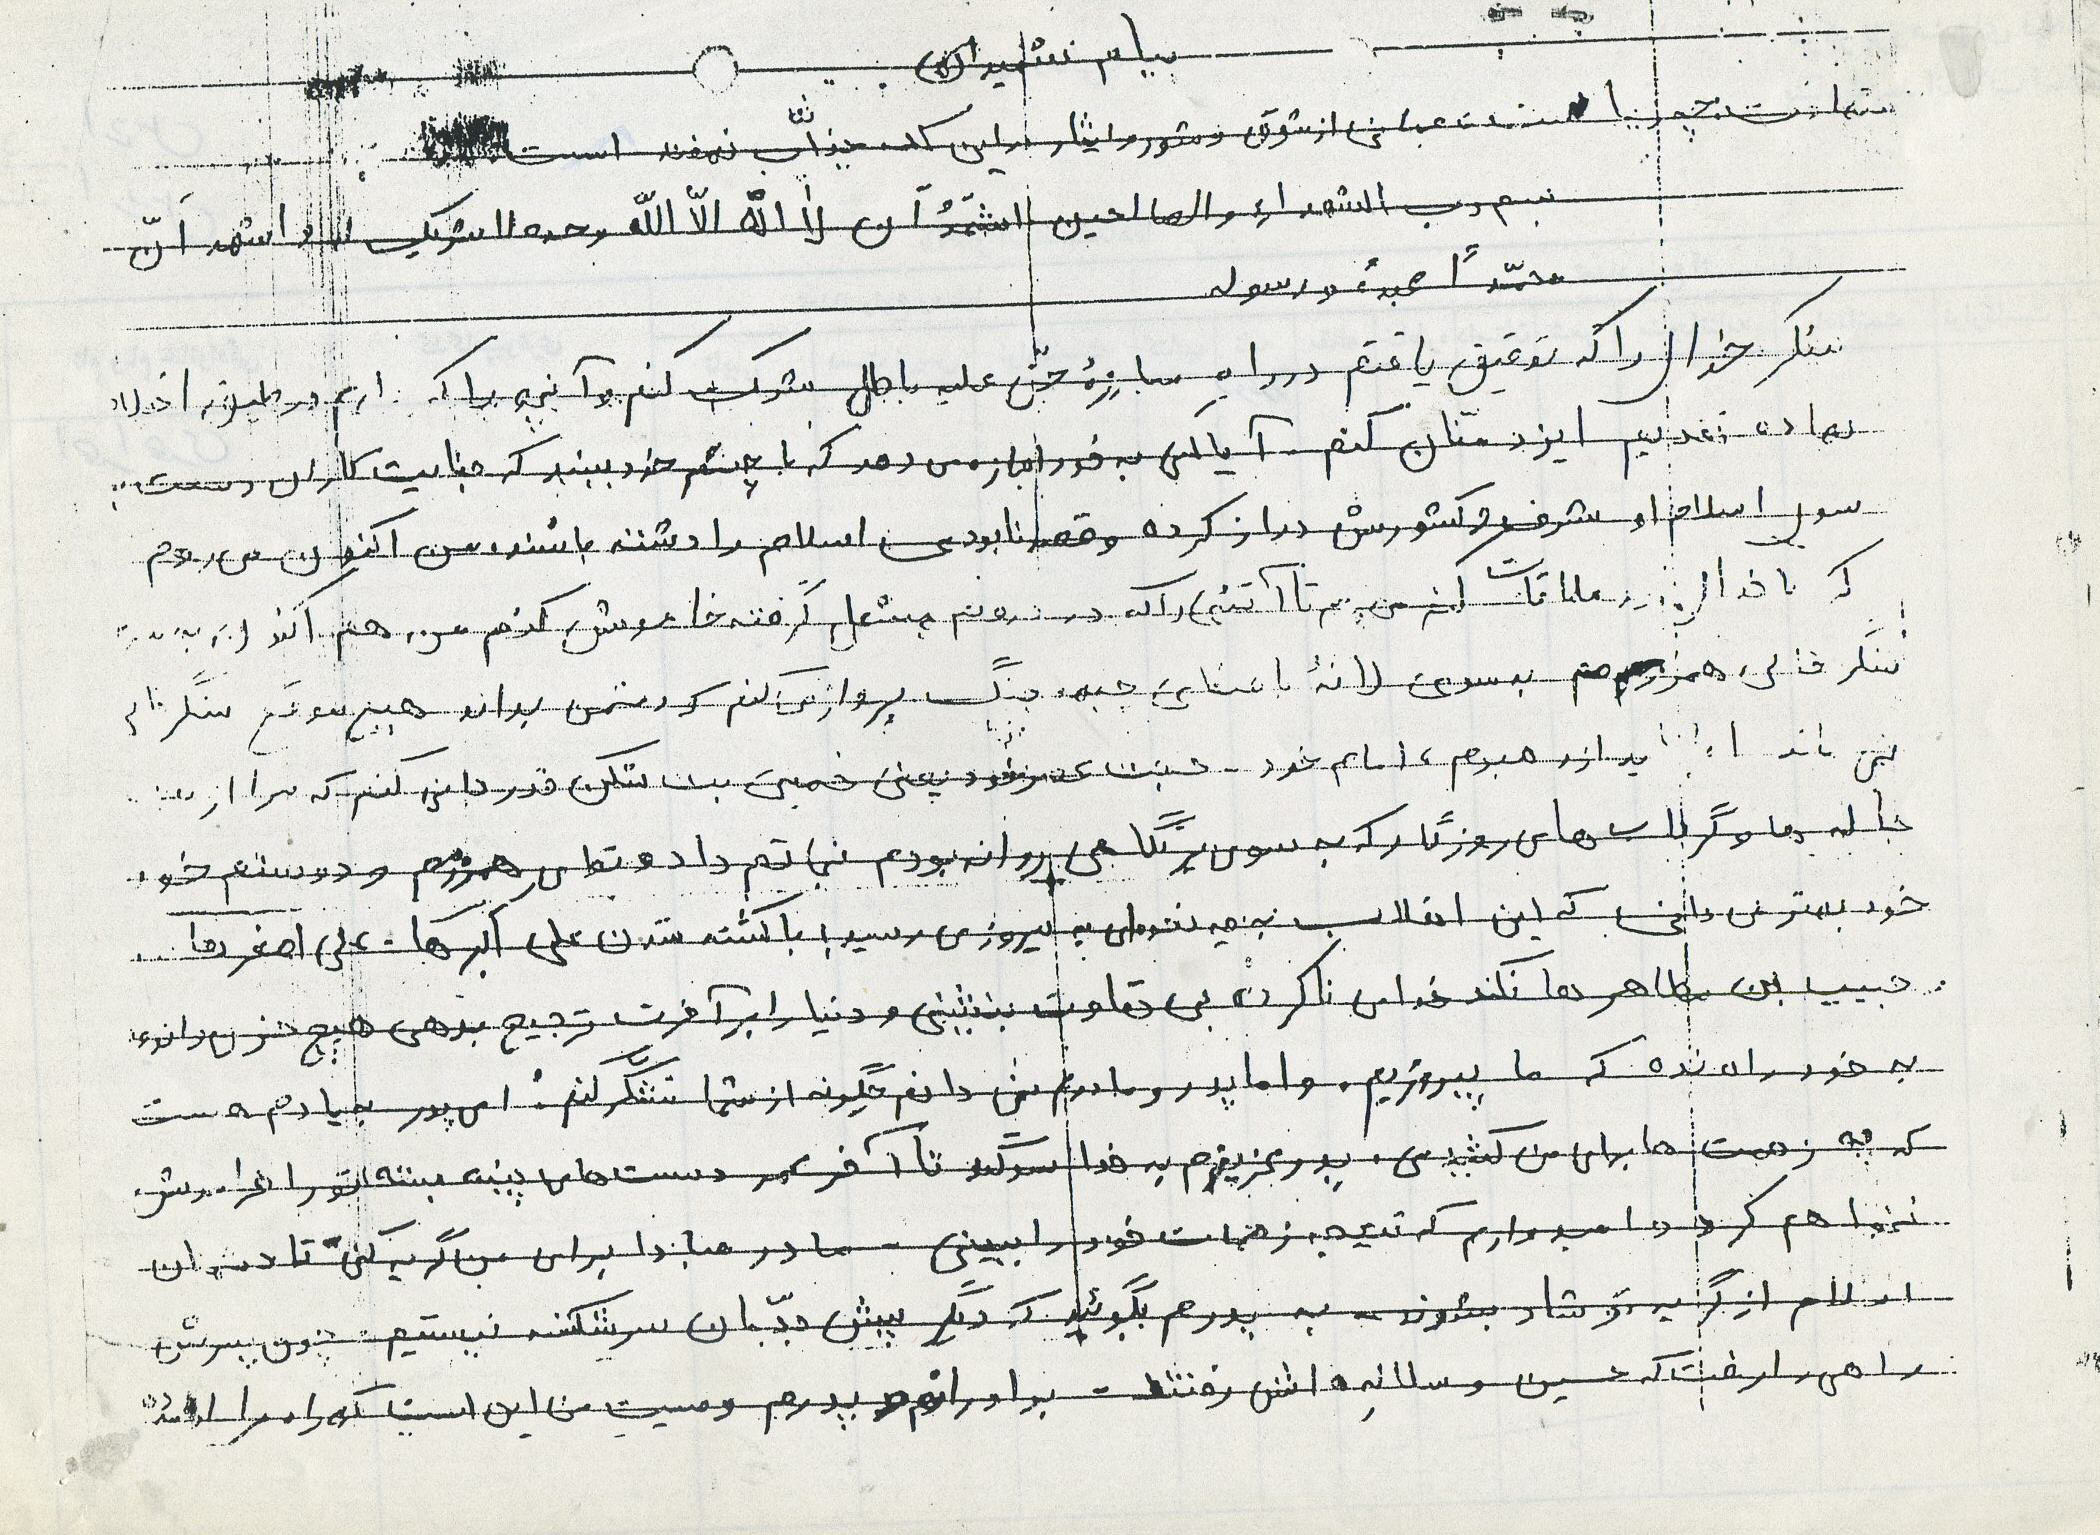 پیام شهیدان
شهادت چه زیبا است عباتی از شوق و شور و ایثار در این کلمه جذاب نهفته است
بسم رب الشهداء والصالحین اشهَدُ اَن لا اِلٰهَ الّا اللّه وحده لا شریک له و اشهد اَنّ
محمّداً عبدهُ و رسوله
شکر خدای را که توفیق یافتم در راه مبارزهٔ حق علیه باطل شرکت کنم و آنچه را که دارم در طبق اخلاص
نهاده تقدیم ایزد منّان کنم. آیا کسی به خود اجازه می دهد که با چشم خود ببیند که جنایت کاران دست
سوی اسلام او شرف و کشورش دراز کرده و قصد نابودی اسلام را داشته باشند من اکنون می روم
که با خدای خود ملاقات کنم می روم تا آتشی را که در درونم مشعل گرفته خاموش کنم من هم اکنون به
سنگر خالی همرزمم به سوی لانهٔ باصفای جبهه جنگ پرواز می کنم که دشمن بداند هیچ موقع سنگر خالی
نمی ماند اما باید از رهبرم، امام خود - خمینی بت شکن قدردانی کنم که مرا از
جا له و گرداب های روزگار که به سوی پرتگاهی روانه بودم نجاتم داد و تو ای همرزمم و دوستم خود
خود بهتر می دانی که این انقلاب به چه نحوی به پیروزی رسید، با کشته شدن علی اکبرها - علی اصغرها
حبیب ابن مظاهر ها نکند خدای ناکرده بی تفاوت بنشینی و دنیا را بر آخرت ترجیح بدهی هیچ
به خود راه نده که ما پیروزیم. و اما پدر و مادرم نمی دانم چگونه از شما تشکر کنم. ای پدر به یادم هست
که چه زحمت ها برای من کشیدی. پدر عزیزم به خدا سوگند تا آخر عمر دست های پینه بسته تو را فراموش
نخواهم کرد و امیدوارم که نتیجه زحمات خود را ببینی - مادر مبادا برای من گریه کنی تا دشمنان
اسلام از گریه تو شاد بشوند - به پدرم بگوئید که دیگر پیش مردمان سرشکسته نیستیم. چون پسرش
راهی را رفت که حسین و سلاله اش رفتند - برادرانم و پدرم وصیت من این است که راه مرا ادامه